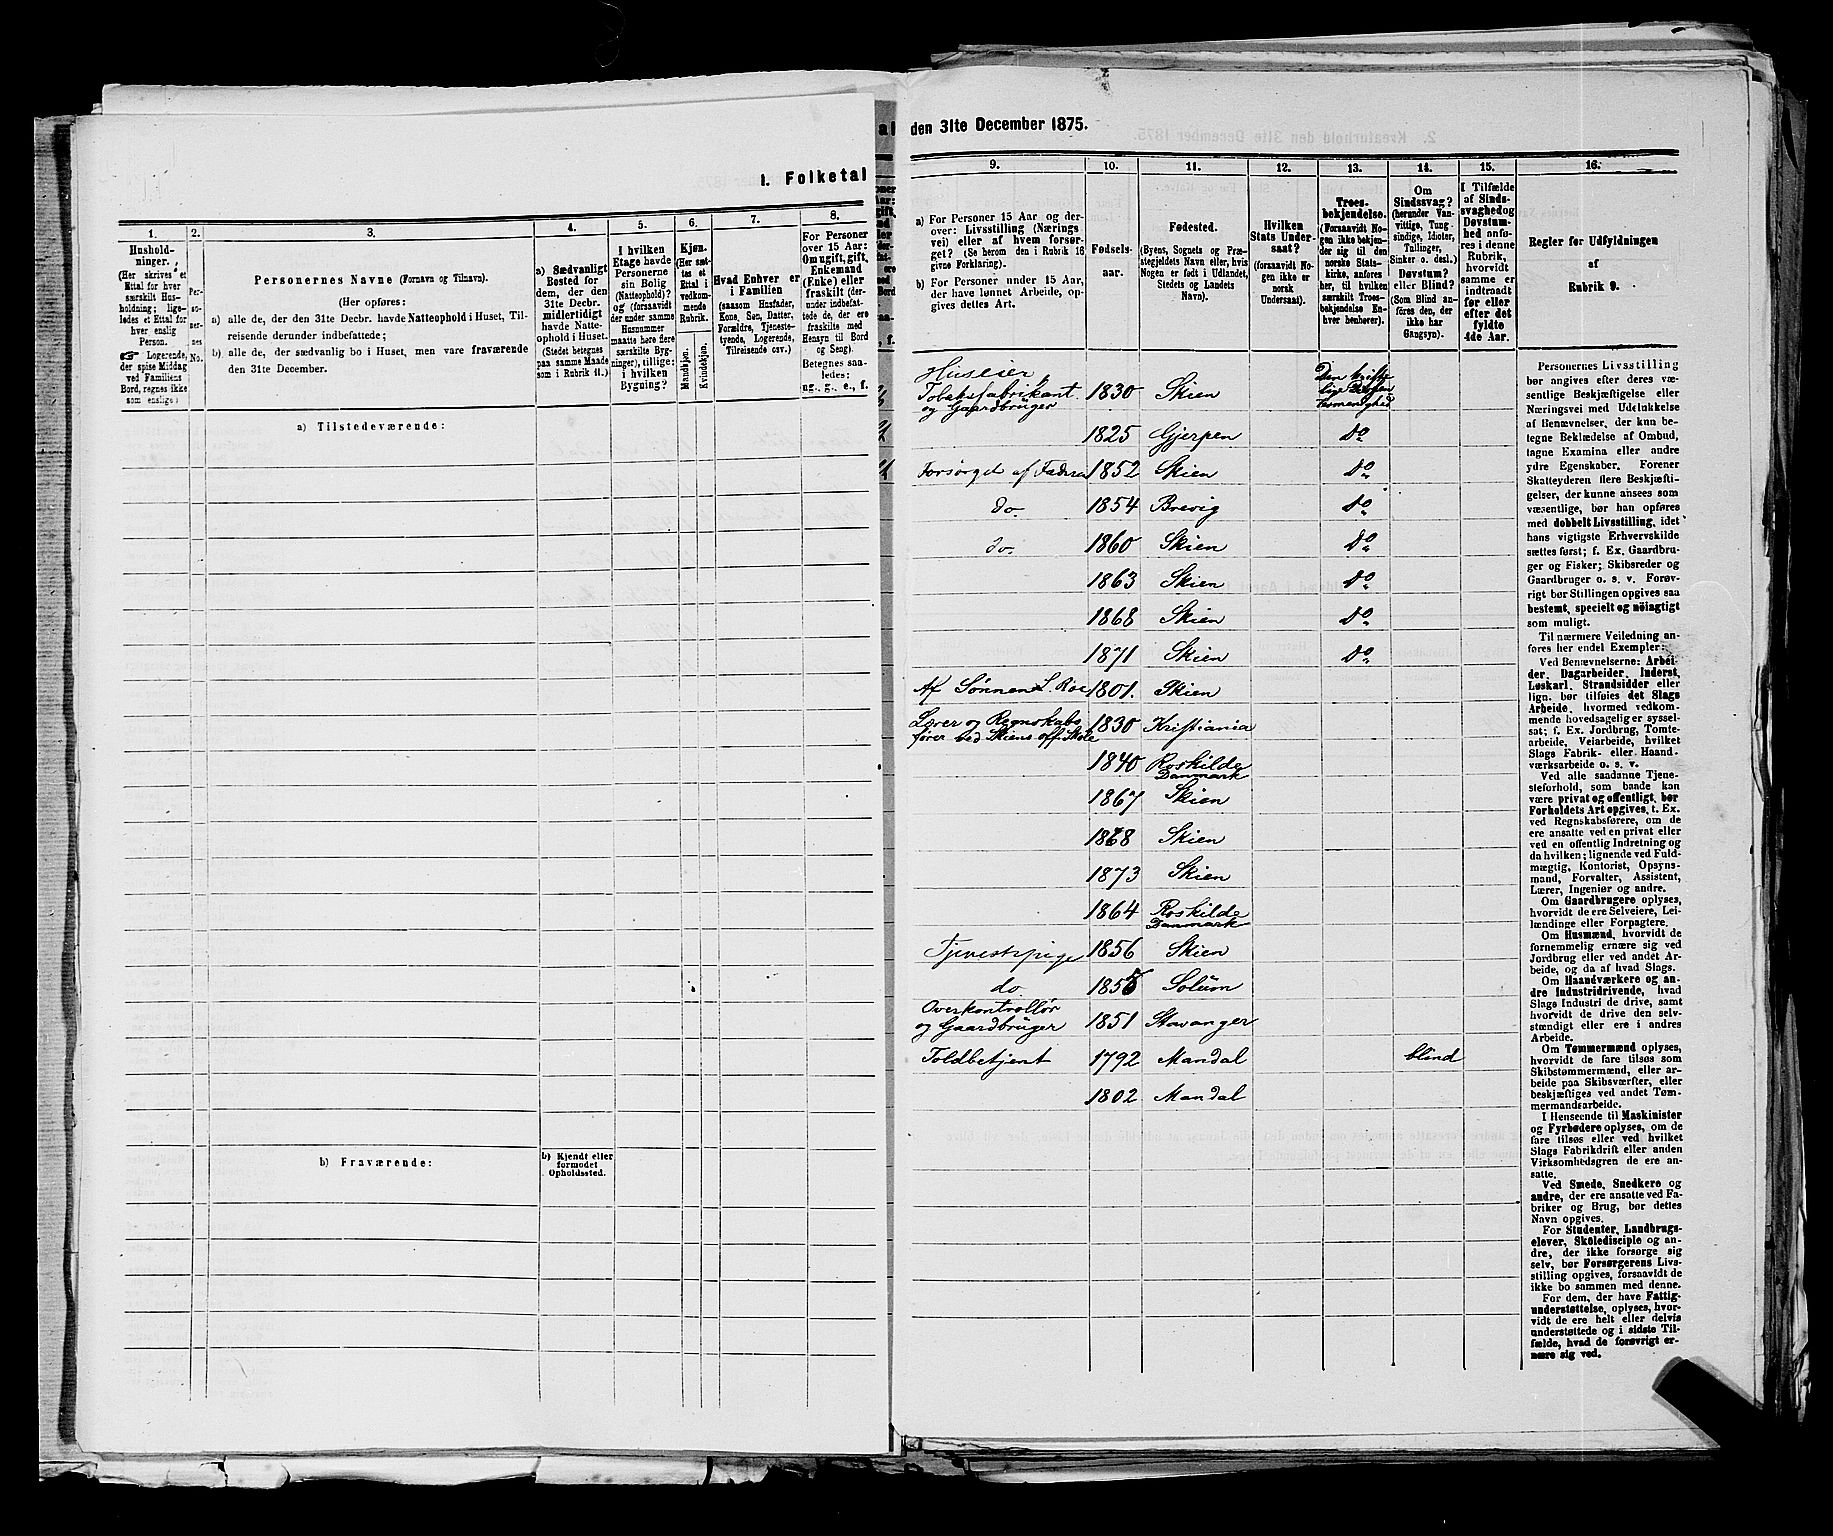 1. Folketal
1.
Hushold-
ninger.
(Her skrives et
Ettal for hver
særskilt Hus-
holdning; lige-
ledes et Ettal for
hver enslig
Person.
☞ Logerende,
der spise Middag
ved Familiens
Bord, regnes ikke
som enslige)
2.
Per-
so-
ner-
nes
No.
3.
Personernes Navne (Fornavn og Tilnavn).
(Her opføres:
a) alle de, der den 31te Decbr. havde Natteophold i Huset, Til-
reisende derunder indbefattede;
b) alle de, der sædvanlig bo i Huset, men vare fraværende
den 31te December.
4.
a) Sædvanligt
Bosted for
dem, der den
31te Decbr.
midlertidigt
havde Natte-
ophold i Huset.
(Stedet betegnes
paa samme Maade
som i Rubrik 11.)
5.
I hvilken
Etage havde
Personerne
sin Bolig
(Natteophold)?
og (forsaavidt
der under samme
Husnummer
maatte høre flere
særskilte Byg-
ninger), tillige:
i hvilken
Bygning?
6.
Kjøn.
(Her sæt-
tes et
Ettal i
vedkom-
mende
Rubrik.
Mandkjøn.
Kvindekjøn.
7.
Hvad Enhver er
i Familien
(saasom Husfader,
Kone, Søn, Datter,
Forældre, Tjeneste-
tyende, Logerende,
Tilreisende osv.)
8.
For Personer
over 15 Aar:
Om ugift, gift,
Enkemand
(Enke) eller
fraskilt (der-
under indbefat-
tede de, der ere
fraskilte med
Hensyn til Bord
og Seng).
Betegnes saa-
ledes:
ug., g., e., f.
a) Tilstedeværende:
b) Fraværende:
b) Kjendt eller
formodet
Opholdssted.
den 31te December 1875.
9.
a) For Personer 15 Aar og der-
over: Livsstilling (Nærings-
vei) eller af hvem forsør-
get? (Se herom den i Rubrik 16
givne Forklaring).
b) For Personer under 15 Aar,
der have lønnet Arbeide, op-
gives dettes Art.
10.
Fødsels-
aar.
11.
Fødested.
(Byens, Sognets og Præ-
stegjeldets Navn eller, hvis
Nogen er født i Udlandet,
Stedets og Landets
Navn).
12.
Hvilken
Stats Under-
saat?
(forsaavidt No-
gen ikke er
norsk
Undersaat).
13.
Troes-
bekjendelse.
(Forsaavidt No-
gen ikke bekjen-
der sig til den
norske Stats-
kirke, anføres
her, til hvilken
særskilt Troes-
bekjendelse En-
hver henhører).
14.
Om
Sindssvag?
(herunder Van-
vittige, Tung-
sindige, Idioter,
Tullinger,
Sinker o. desl.)
Døvstum?
eller Blind?
(Som Blind an-
føres den, der
ikke har
Gangsyn).
15.
I Tilfælde
af Sinds-
svaghed og
Døvstum-
hed anfø-
res i denne
Rubrik,
hvorvidt
samme er
indtraadt
før eller
efter det
fyldte
4de Aar.
16.
Regler for Udfyldningen
af
Rubrik 9.
Huseier,
Tobaksfabrikant 1830 Skien
og Gaardbruger
1825 Gjerpen Do
Forsørget af Faderen 1852 Skien Do
do. 1854 Brevig Do
do. 1860 Skien Do
1863 Skien Do
1868 Skien Do
1871 Skien Do
Af Sønnen 1801. Skien
Lærer og Regnskabs 1830 Kristiania
fører ved Skiens off. Skole
1840 Roskilde
Danmark
1867 Skien
1868 Skien
1873 Skien
1864 Roskilde
Danmark
Tjenestepige 1856 Skien
do. Solum
Overkontrollør
og Gaardbruger 1851 Stavanger
Toldbetjent 1792 Mandal blind
1802 Mandal
Personernes Livsstilling
bør angives efter deres væ-
sentlige Beskjæftigelse eller
Næringsvei med Udelukkelse
af Benævnelser, der kun be-
tegne Beklædelse af Ombud,
tagne Examina eller andre
ydre Egenskaber. Forener
Skatteyderen flere Beskjæfti-
gelser, der kunne ansees som
væsentlige, bør han opføres
med dobbelt Livsstilling, idet
hans vigtigste Erhvervskilde
sættes først; f. Ex. Gaardbru-
ger og Fisker; Skibsreder og
Gaardbruger o. s. v. Forøv-
rigt bør Stillingen opgives saa
bestemt, specielt og nøiagtigt
som muligt.
Til nærmere Veiledning an-
føres her endel Exempler:
Ved Benævnelserne: Arbei-
der, Dagarbeider, Inderst,
Løskarl, Strandsidder eller
lign. bør tilføies det Slags
Arbeide, hvormed vedkom-
mende hovedsagelig er syssel-
sat; f. Ex. Jordbrug, Tomte-
arbeide, Veiarbeide, hvilket
Slags Fabrik- eller Haand-
værksarbeide o. s. v.
Ved alle saadanne Tjene-
steforhold, som baade kan
være privat og offentligt, bør
Forholdets Art opgives, t. Ex.
ved Regnskabsførere, om de
ere ansatte ved en privat eller
ved en offentlig Indretning og
da hvilken; lignende ved Fuld-
mægtig, Kontorist, Opsyns-
mand, Forvalter, Assistent,
Lærer, Ingeniør og andre.
Om Gaardbrugere oplyses,
hvorvidt de ere Selveiere, Lei-
lændinge eller Forpagtere.
Om Husmænd, hvorvidt de
fornemmelig ernære sig ved
Jordbrug eller ved andet Ar-
beide, og da af hvad Slags.
Om Haandværkere og an-
dre Industridrivende, hvad
Slags Industri de drive, samt
hvorvidt de drive den selv-
stændigt eller ere i andres
Arbeide.
Om Tømmermænd oplyses,
hvorvidt de fare tilsøs som
Skibstømmermænd, eller ar-
beide paa Skibsværfter, eller
beskjæftiges ved andet Tøm-
mermandsarbeide.
I Henseende til Maskinister
og Fyrbødere oplyses, om de
fare tilsøs eller ved hvilket
Slags Fabrikdrift eller anden
Virksomhedsgren de ere an-
satte.
Ved Smede, Snedkere og
andre, der ere ansatte ved Fa-
briker og Brug, bør dettes
Navn opgives.
For Studenter, Landbrugs-
elever, Skoledisciple og an-
dre, der ikke forsørge sig
selv, bør Forsørgerens Livs-
stilling opgives, forsaavidt de
ikke bo sammen med denne.
For dem, der have Fattig-
understøttelse, oplyses, hvor-
vidt de ere helt eller delvis
understøttede og i sidste Til-
fælde, hvad de forøvrigt er-
nære sig ved.